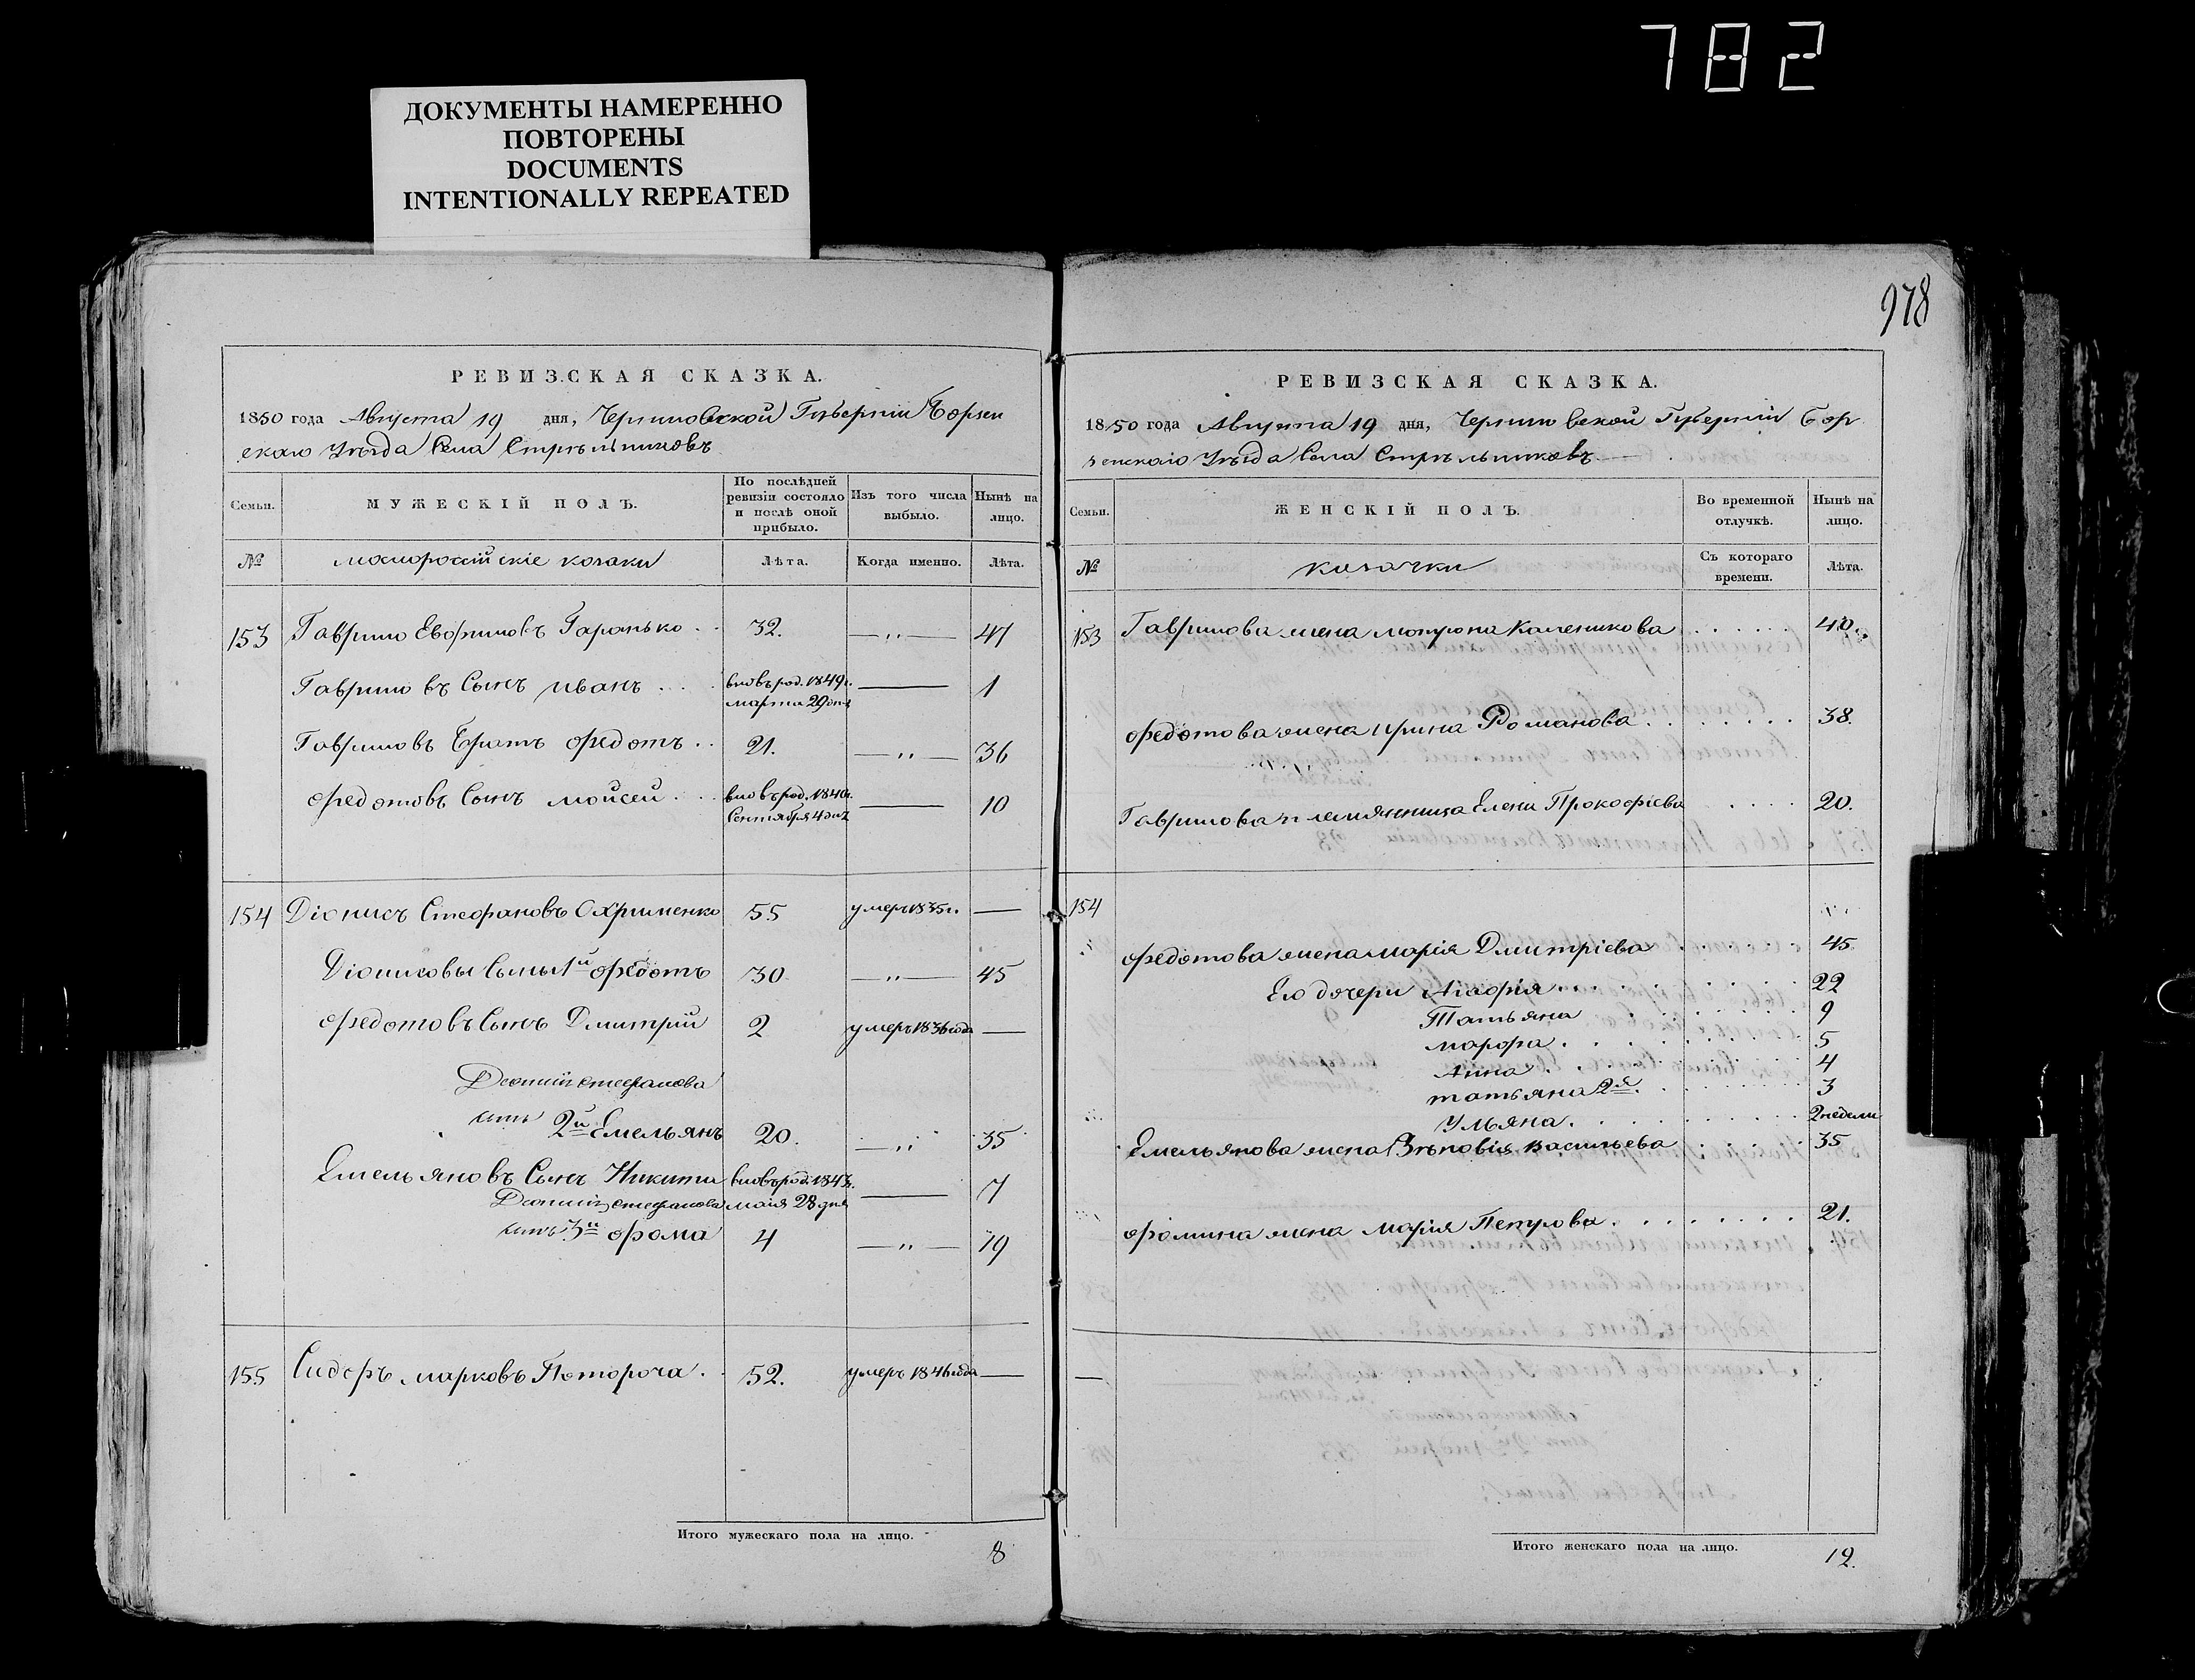 782
ДОКУМЕНТЫ НАМЕРЕННО
ПОВТОРЕНЫ
DOCUMENTS
INTENTIONALLY REPEATED
978
РЕВИЗСКАЯ СКАЗКА.
1850 года Августа 19 дня, Черниговской Губернiи Борзен
скаго Уѣзда Села Стрѣльниковъ
Семьи. МУЖЕСКІЙ ПОЛЪ. По послѣдней ревизіи состояло и послѣ оной прибыло. Изъ того числа выбыло. Нынѣ на лицо.
№ малороссійскіе козаки Лѣта. Когда именно. Лѣта.
153 Гаврило Евфимовъ Гаранько 32. — " — 47
Гавриловъ Сынъ Иванъ вновь род. 1849г. марта 29 дня — 1
Гавриловъ Братъ Федотъ 21. — " — 36
Федотовъ Сынъ Мойсей вновь род. 1840г. Сентября 4 дня — 10
154 Діонисъ Стефановъ Охрименко 55 умеръ 1835г. —
Діонисовы Сыны 1й Федотъ 30 — " — 45
Федотовъ Сынъ Дмитрій 2 умеръ 1836 года —
Стефанова
сынъ 2й Емельянъ 20. — " — 35
Емельяновъ Сынъ Никита вновь род. 1843г. маія 28 дня — 7
Стефанова
сынъ 3й Фома 4 — " — 19
155 Сидоръ Марковъ Потороча 52. умеръ 1846 года —
Итого мужескаго пола на лицо.
8
РЕВИЗСКАЯ СКАЗКА.
1850 года Августа 19 дня, Черниговской Губернiи Бор
зенскаго Уѣзда Села Стрѣльниковъ
Семьи. ЖЕНСКІЙ ПОЛЪ. Во временной отлучкѣ. Нынѣ на лицо.
№ козачки Съ котораго времени. Лѣта.
153 Гаврилова жена Мотрона Каленикова 40.
Федотова жена Ирина Романова 38.
Гаврилова племянница Елена Прокофіева 20.
154
Федотова жена Марія Дмитріева 45
Его дочери Агафія 22
Татьяна 9
Марфа 5
Анна 4
Татьяна 2я 3
Ульяна 2 недели
Емельянова жена Зѣновія Васильева 35
Фомина жена Марія Петрова 21.
—
Итого женскаго пола на лицо.
12.